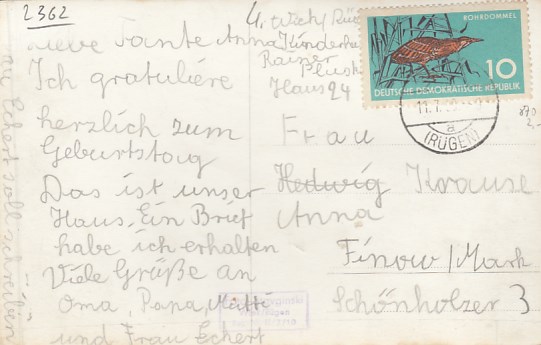 2362
Liebe Tante Anna
Ich gratuliere
herzlich zum
Geburtstag
Das ist unser
Haus, Ein Brief
habe ich erhalten
Viele Grüße an
Oma, Papa, Mutti
und Frau Eckert
Frau Eckert soll schreiben
4. Wiek/Rüg
Kinderhe
Rainer
Plusk
Haus 24
ROHRDOMMEL
10
DEUTSCHE DEMOKRATISCHE REPUBLIK
11.
a
(RÜGEN)
870
2.-
Frau
Hedwig Krause
Anna
Finow/Mark
Schönholzer 3